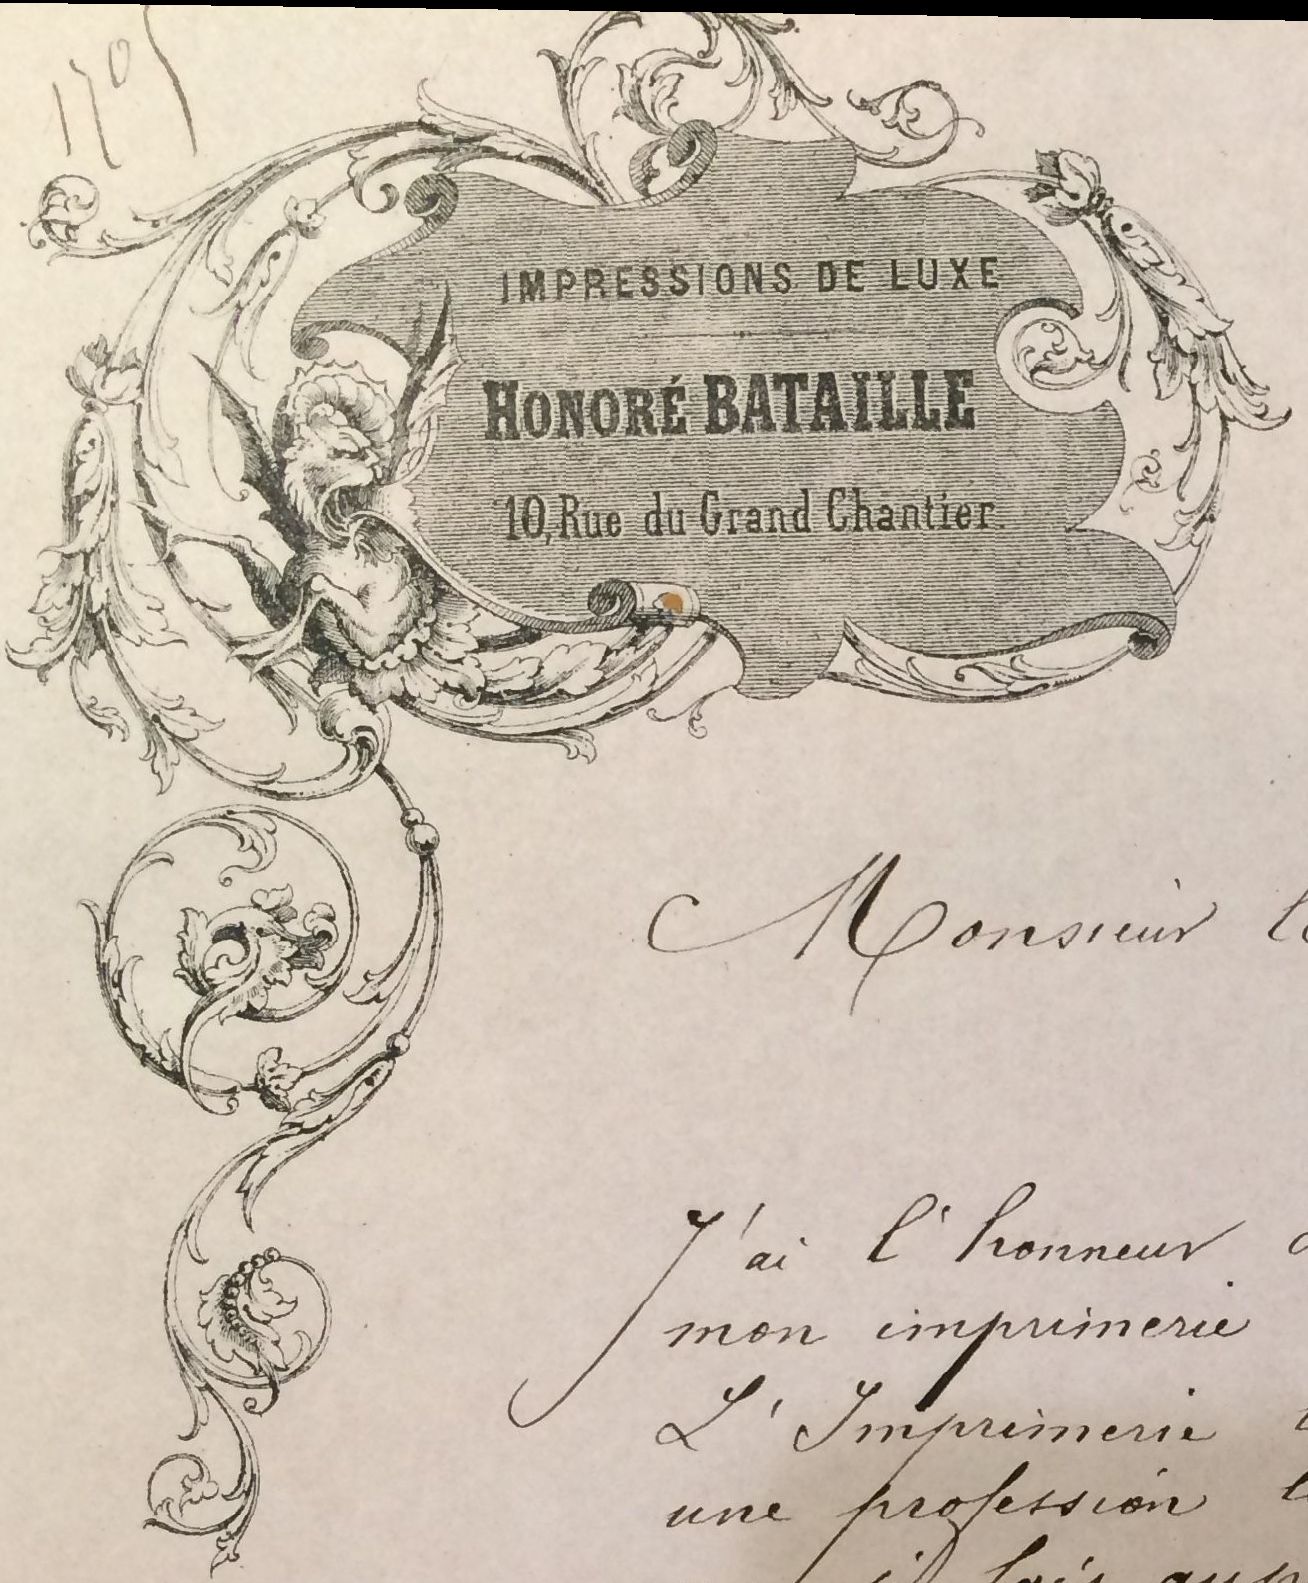 IMPRESSIONS DE LUXE
HONORÉ BATAILLE
10, Rue du Grand Chantier.
Monsieur
J'ai l'honneur
mon imprimerie
L'Imprimerie
une profession